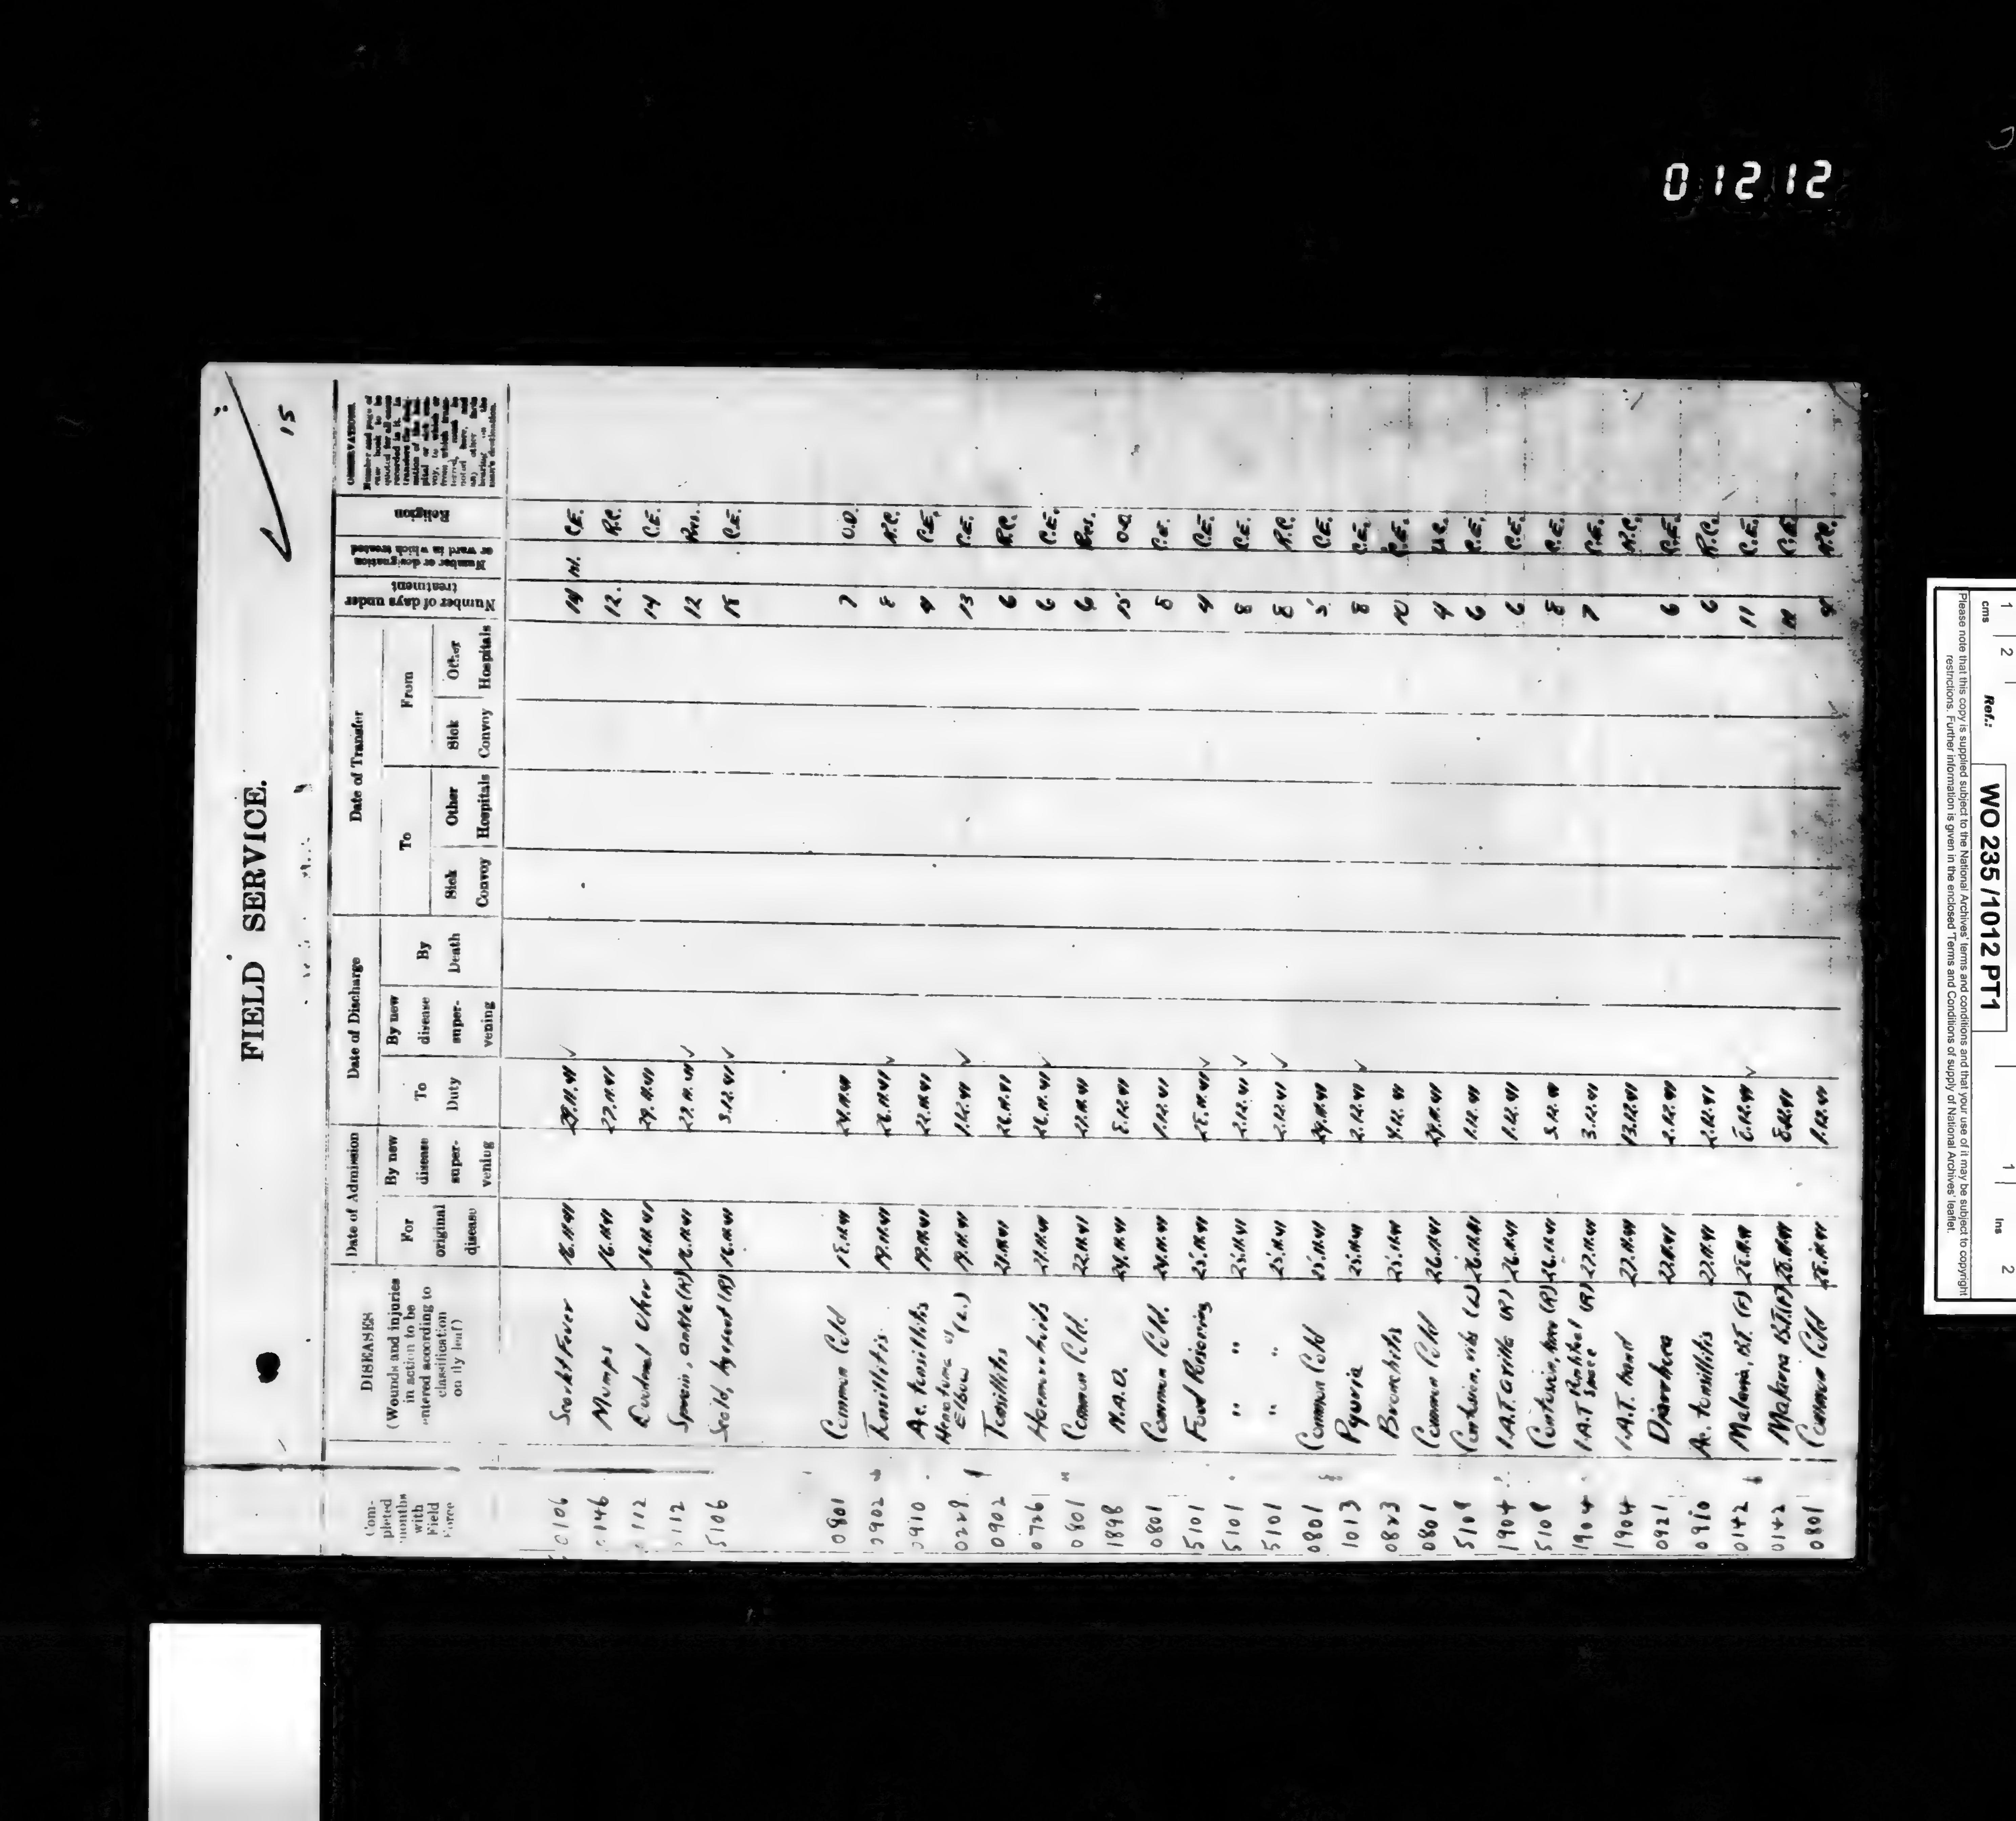 01212
15
FIELD SERVICE.
Completed months with Field Force
DISEASES
(Wounds and injuries in action to be entered according to classification on fly leaf)
Date of Admission
For original disease
By new disease supervening
Date of Discharge
To Duty
By new disease supervening
By Death
Date of Transfer
To
Sick Convoy
Other Hospitals
From
Sick Convoy
Other Hospitals
Number of days under treatment
Number or designation or ward in which treated
Religion
OBSERVATIONS.
0106 Scarlet Fever 16.11.41 29.11.41 14 C.E.
0146 Mumps 16.11.41 27.11.41 12 R.C.
112 Duodenal Ulcer 16.11.41 29.11.41 14 C.E.
112 Sprain, ankle (R) 16.11.41 27.11.41 12 Pres.
5106 Scald, by spout (R) 16.11.41 3.12.41 18 C.E.
0801 Common Cold 18.11.41 24.11.41 7 O.D.
0902 Tonsillitis 19.11.41 26.11.41 8 R.C.
0910 Ac. tonsillitis 19.11.41 22.11.41 4 C.E.
0228 Hematoma of Elbow (L.) 19.11.41 1.12.41 13 C.E.
0902 Tonsillitis 21.11.41 26.11.41 6 R.C.
0726 Haemorrhoids 21.11.41 26.11.41 6 C.E.
0801 Common Cold. 22.11.41 27.11.41 6 Pres.
1898 N.A.D. 24.11.41 8.12.41 15 O.D.
0801 Common Cold. 24.11.41 1.12.41 8 C.E.
5101 Food Poisoning 25.11.41 28.11.41 4 C.E.
5101 " " 25.11.41 2.12.41 8 C.E.
5101 " " 25.11.41 2.12.41 8 R.C.
0801 Common Cold 25.11.41 29.11.41 5 C.E.
1013 Pyuria 25.11.41 2.12.41 8 C.E.
0823 Bronchitis 25.11.41 4.12.41 10 C.E.
0801 Common Cold 26.11.41 29.11.41 4
5108 Contusion, ribs (L) 26.11.41 1.12.41 6 C.E.
1904 I.A.T. axilla (R) 26.11.41 1.12.41 6 C.E.
5108 Contusion, knee (R) 26.11.41 3.12.41 8 C.E.
1904 I.A.T Popliteal space (R) 27.11.41 3.12.41 7 C.E.
1904 I.A.T. hand 27.11.41 13.12.41 R.C.
0921 Diarrhoea 27.11.41 2.12.41 6 C.E.
0910 Ac. tonsillitis 27.11.41 2.12.41 6 R.C.
0142 Malaria, B.T. (F) 28.11.41 8.12.41 11 C.E.
0142 Malaria B.T.(F) 28.11.41 8.12.41 11 C.E.
0801 Common Cold 28.11.41 1.12.41 4 R.C.
cms
1
2
Ref.:
WO 235 / 1012 PT1
1
Ins
2
Please note that this copy is supplied subject to the National Archives' terms and conditions and that your use of it may be subject to copyright
restrictions. Further information is given in the enclosed 'Terms and Conditions of supply of National Archives' leaflet.